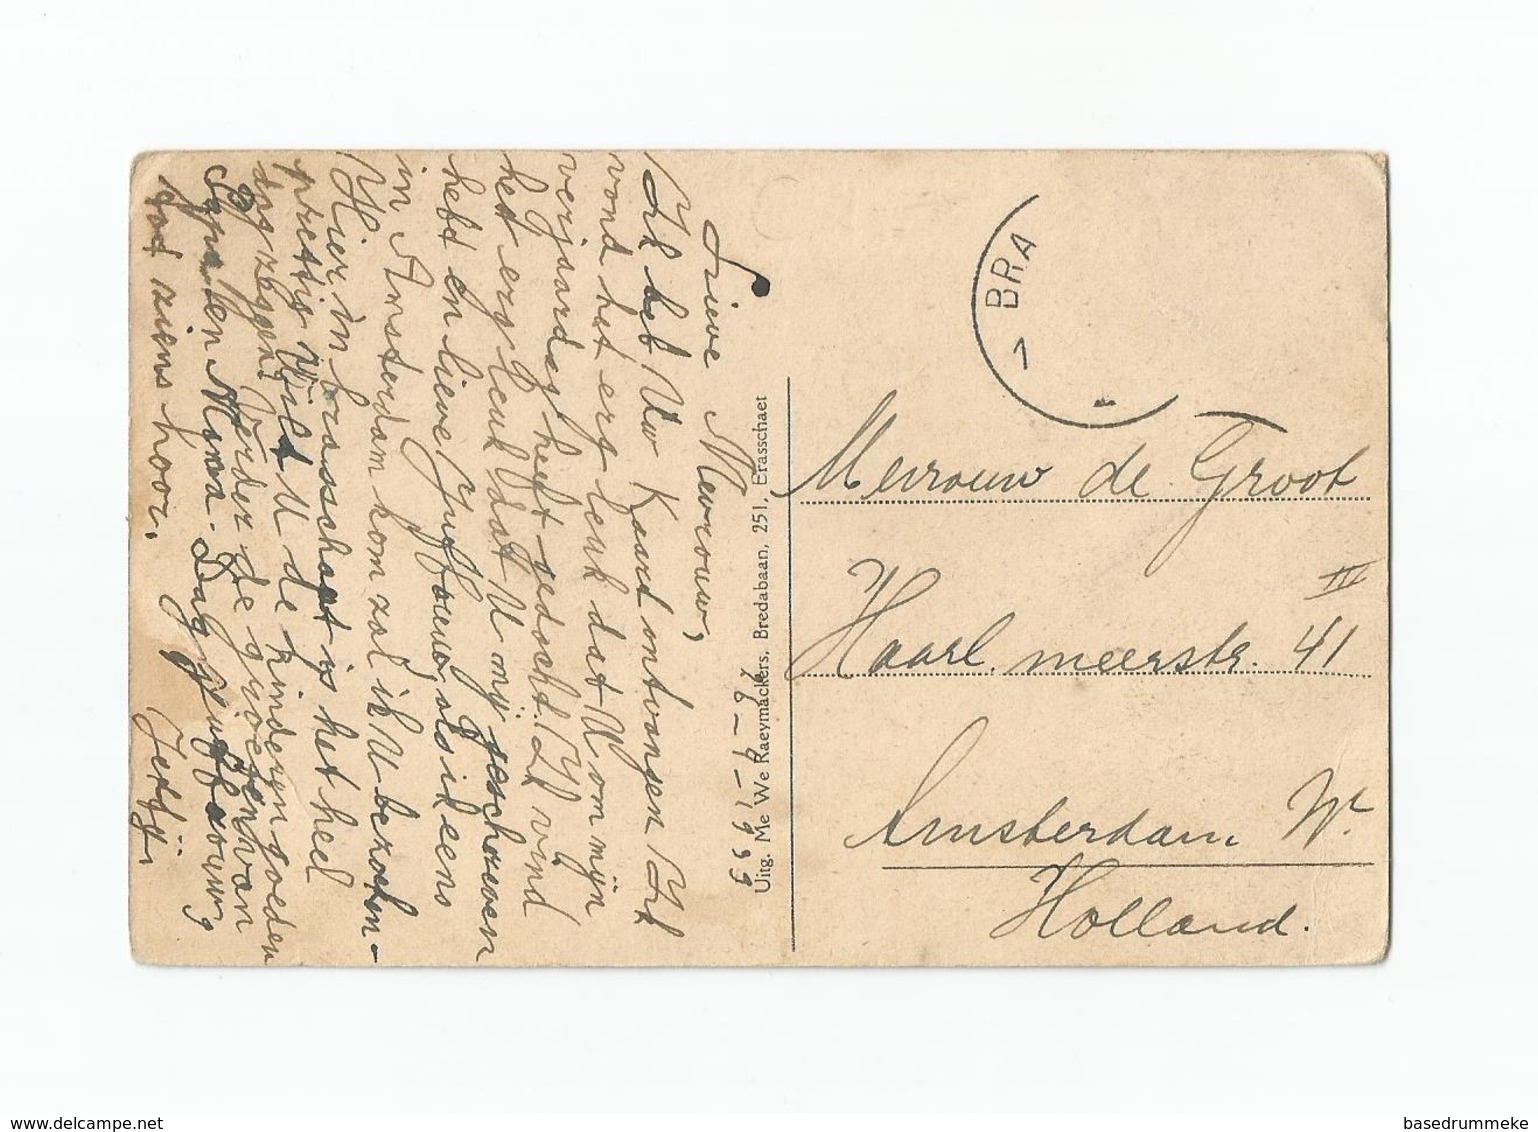 BRA
Mevrouw de Groot
III
Haarl. meerstr. 41
Amsterdam W.
Holland.
Uitg. Me We Raeymackers, Bredabaan, 251, Brasschaet
Lieve Mevrouw,
Ik heb Uw Kaard ontvangen Ik
vond het erg leuk dat U om mijn
verjaardag heeft gedacht. Ik vind
het erg leuk dat U mij geschreven
hebd en lieve Juffouw, als ik eens
in Amsterdam kom zal ik U bezoeken-
Hier in brasschaat is het heel
prettig Wilt U de kinderen goeden
dag zeggen. Verder de groeten van
Papa en Mama. Dag Juffrouw,
tod ziens hoor.
Jettij.
www.delcampe.net
basedrummeke